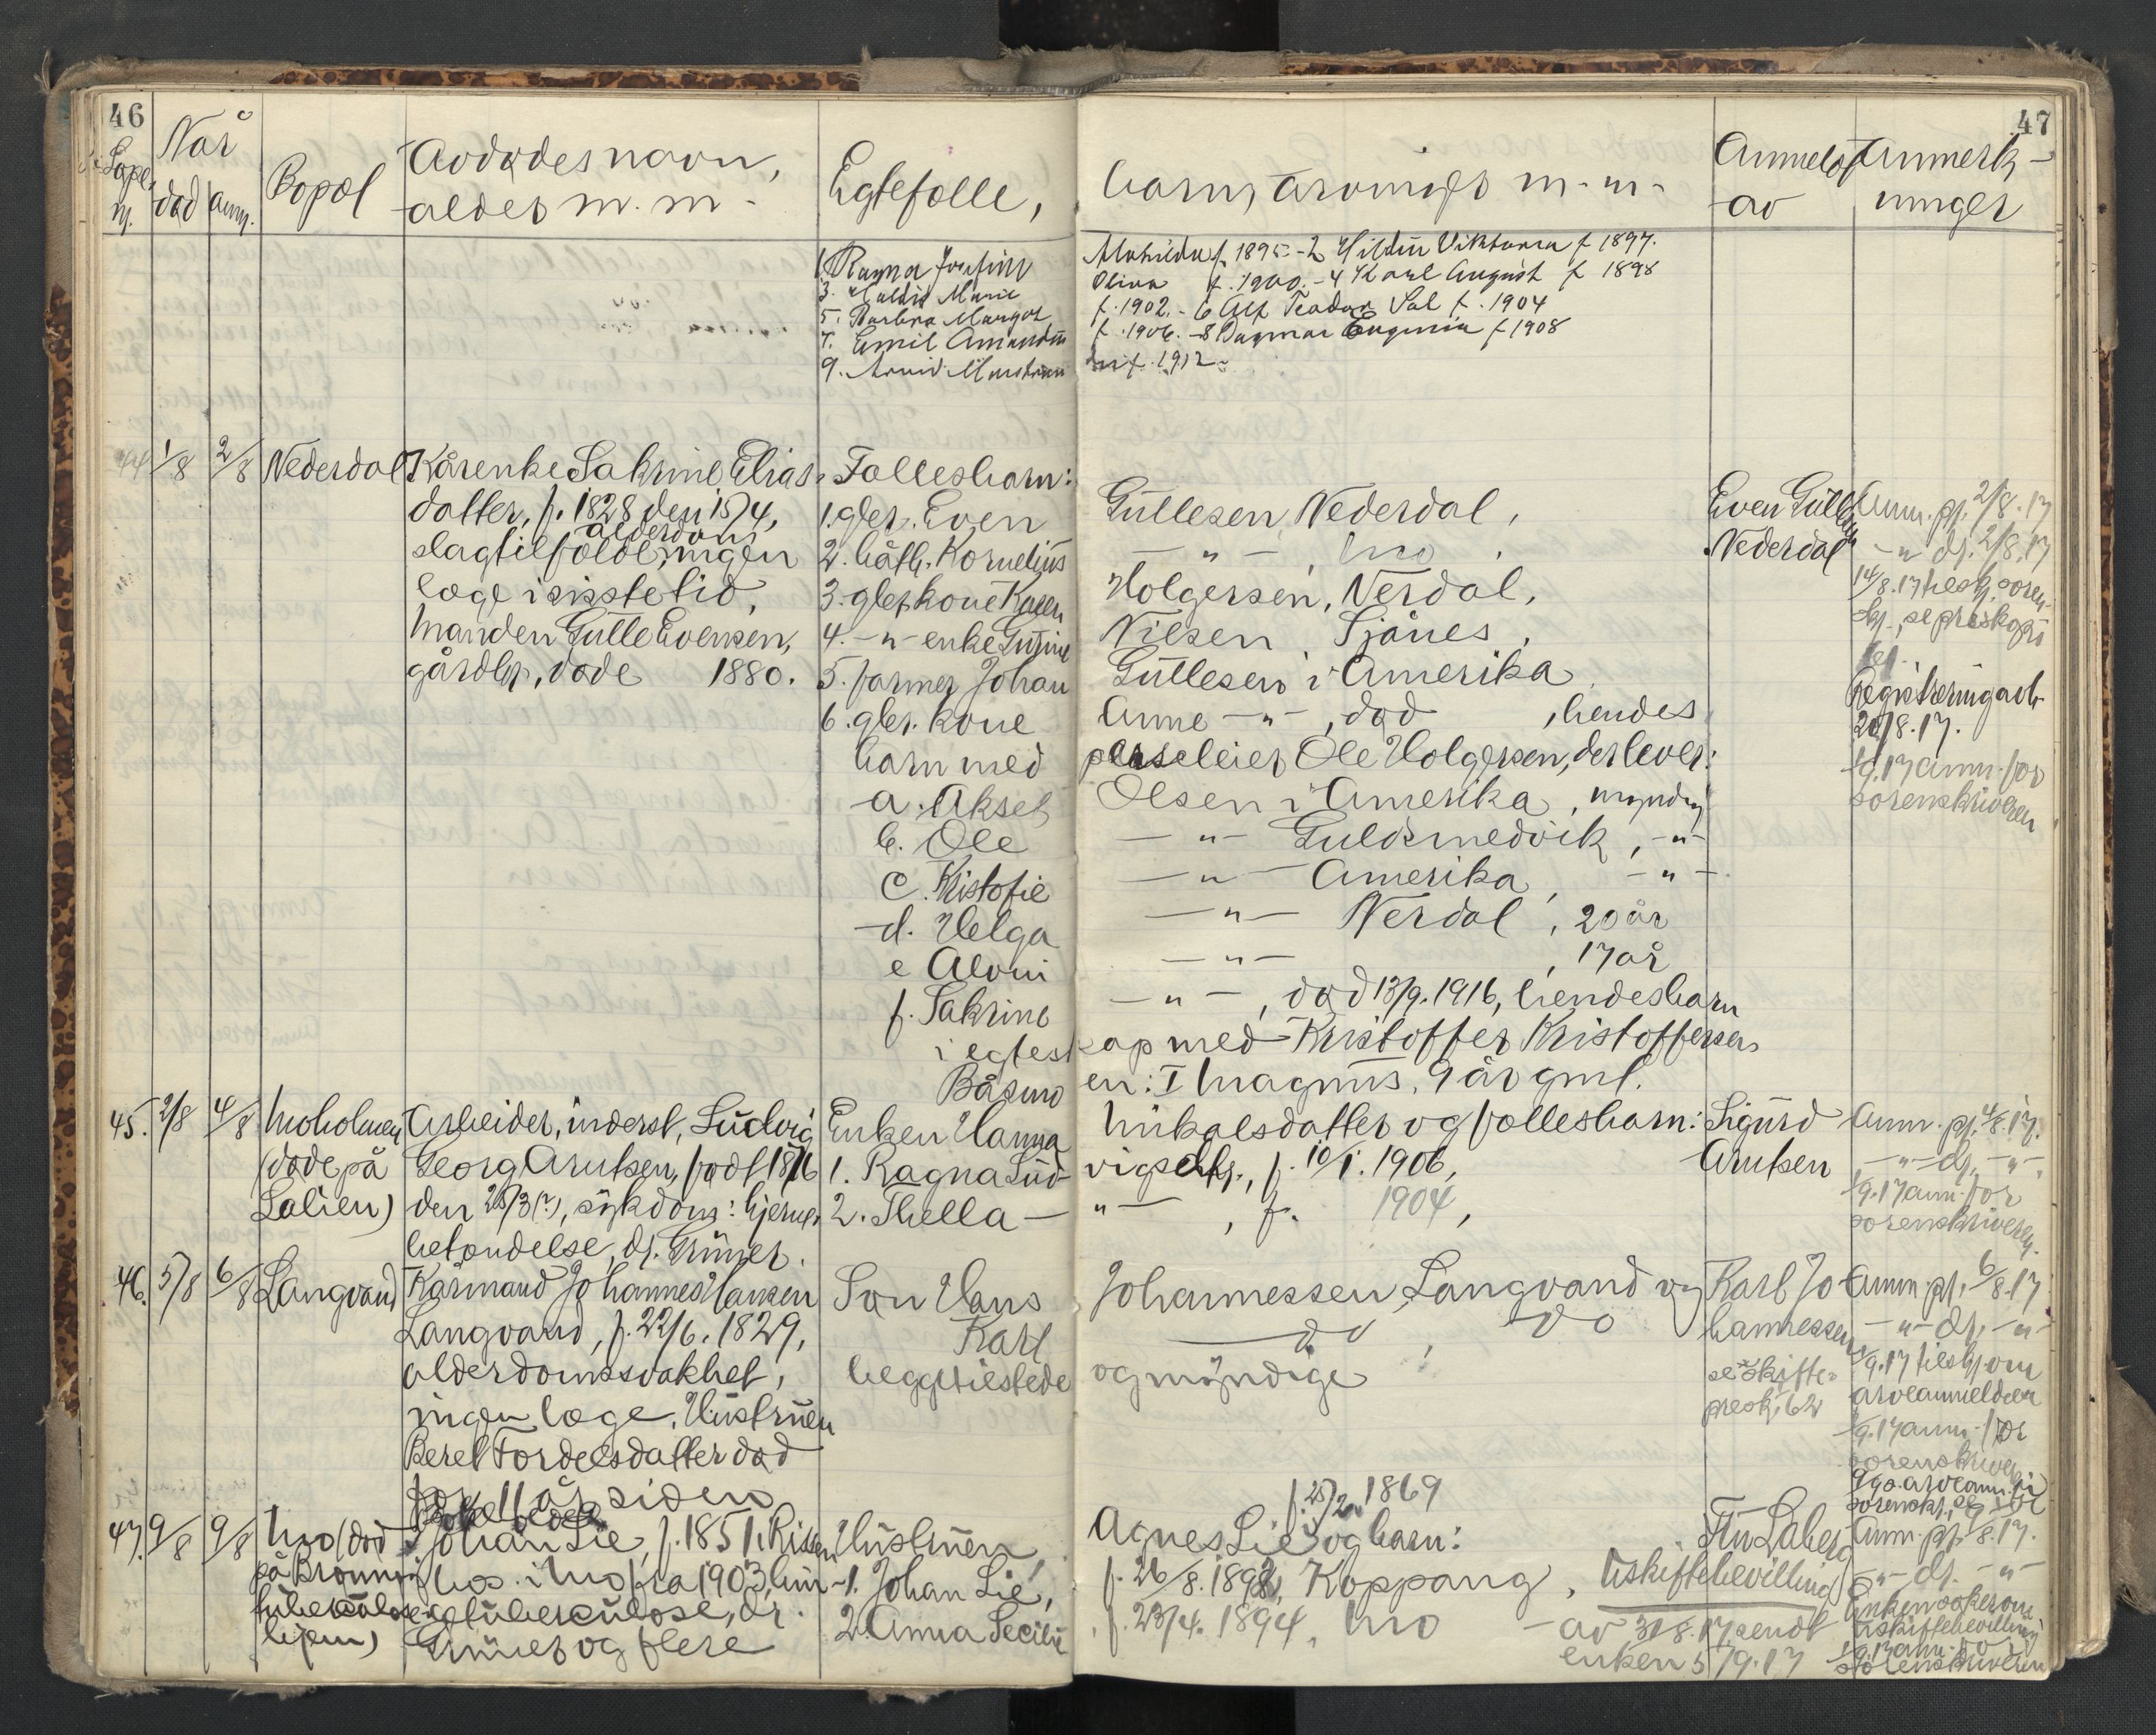 46
47
Løpe nr.
Når
død anm.
Bopæl
Avdødes navn,
alder m. m.
Egtefælle,
barn, arvinger m. m.
Anmeldt
av
Anmerk-
ninger
1. Ragna Josefine Mathilda f. 1895 - 2 Hilda Viktoria f. 1897.
3. Huldis Marie Oliva f. 1900. - 4 Karl August f. 1898
5. Barbra Margot f. 1902. - 6 Alf Teodor Sal f. 1904
7. Emil Amandus f. 1906. - 8 Dagmar Eugenia f 1908
9. Arvid f. 1912
44 1/8 2/8 Nederdal Kårenke Sakrine Elias- Fællesbarn:
datter, f. 1828 den 15/4, 1. gbr. Even Gullesen, Nederdal, Even Gullesen Anm. pf. 2/8.17
alderdoms
slagtilfælde, ingen 2. båtb. Kornelius -"- , Mo , Nederdal -"- df. 2/8.17
læge i siste tid, 3. gbr. kone Karen Holgersen, Nerdal, 14/8.17 besk. soren-
manden Gulle Evensen, 4. -"- enke Gurine Nilsen, Sjånes, skr., se preskopi
gårdbr, døde 1880. 5. farmer Johan Gullesen i Amerika
6. gbr. kone Anne -"-, død , hendes Registrering avh.
20/8.17.
barn med parseleier Ole Holgersen, der lever:
a. Aksel Olsen i Amerika, myndig 1/9.17 anm. for
b. Ole -"- Guldsmedvik, -"- sorenskriveren
c. Kristofie -"- Amerika, -"-
d. Helga -"- Nerdal, 20 år
e Alvin -"- , 17 år
f. Sakrine -"-, død 13/9.1916, hendes barn
i egteskap med Kristoffer Kristoffersen
Båsmoen: I Magnus, 9 år gml.
45. 2/8 4/8 Moholmen Arbeider, inderst, Ludvig Enken Hanna Mikalsdatter og fællesbarn: Sigurd Anm. pf. 4/8.17.
(døde på Georg Arntsen, født 1876 1. Ragna Ludvigsdtr., f. 10/1.1906, Arntsen -"- df. -"-
Lalien) den 28/3(?), sykdom: hjerne- 2. Thella -"- , f. 1904, 1/9.17 anm. for
betændelse, dr. Grüner. sorenskriveren
46. 5/8 6/8 Langvand Kårmand Johannes Hansen Søn Hans Johannessen, Langvand og Karl Jo- Anm. pf. 6/8.17
Langvand, f. 22/6.1829, Karl do do hannessen -"- df. -"-
alderdomssvakhet, begge tilstede og myndige se skifte- 1/9.17 tilskr. om
ingen læge. Hustruen presk. 62 arveanmeldelse
Beret Fordelsdatter død 1/9.17 anm. for
for 11 år siden sorenskriveren
47. 9/8 9/8 Mo (død Johan Lie, f. 1851 i Rissen Hustruen Agnes Lie f. 25/2 1869 og barn: Anm. pf. 9/8.17.
på Brønnøy hos. i Mo fra 1903, lun- 1. Johan Lie, f. 26/8.1892, Koppang, Uskiftebevilling -"- df. -"-
tuberkulose- getuberkulose, dr. 2. Anna Secilie f. 23/4.1894, Mo av 31/8.17 sendt Enken søker om
hjem) Grüner og flere enken 5/9.17 uskiftebevilling
1/9.17 anm. for
sorenskriveren